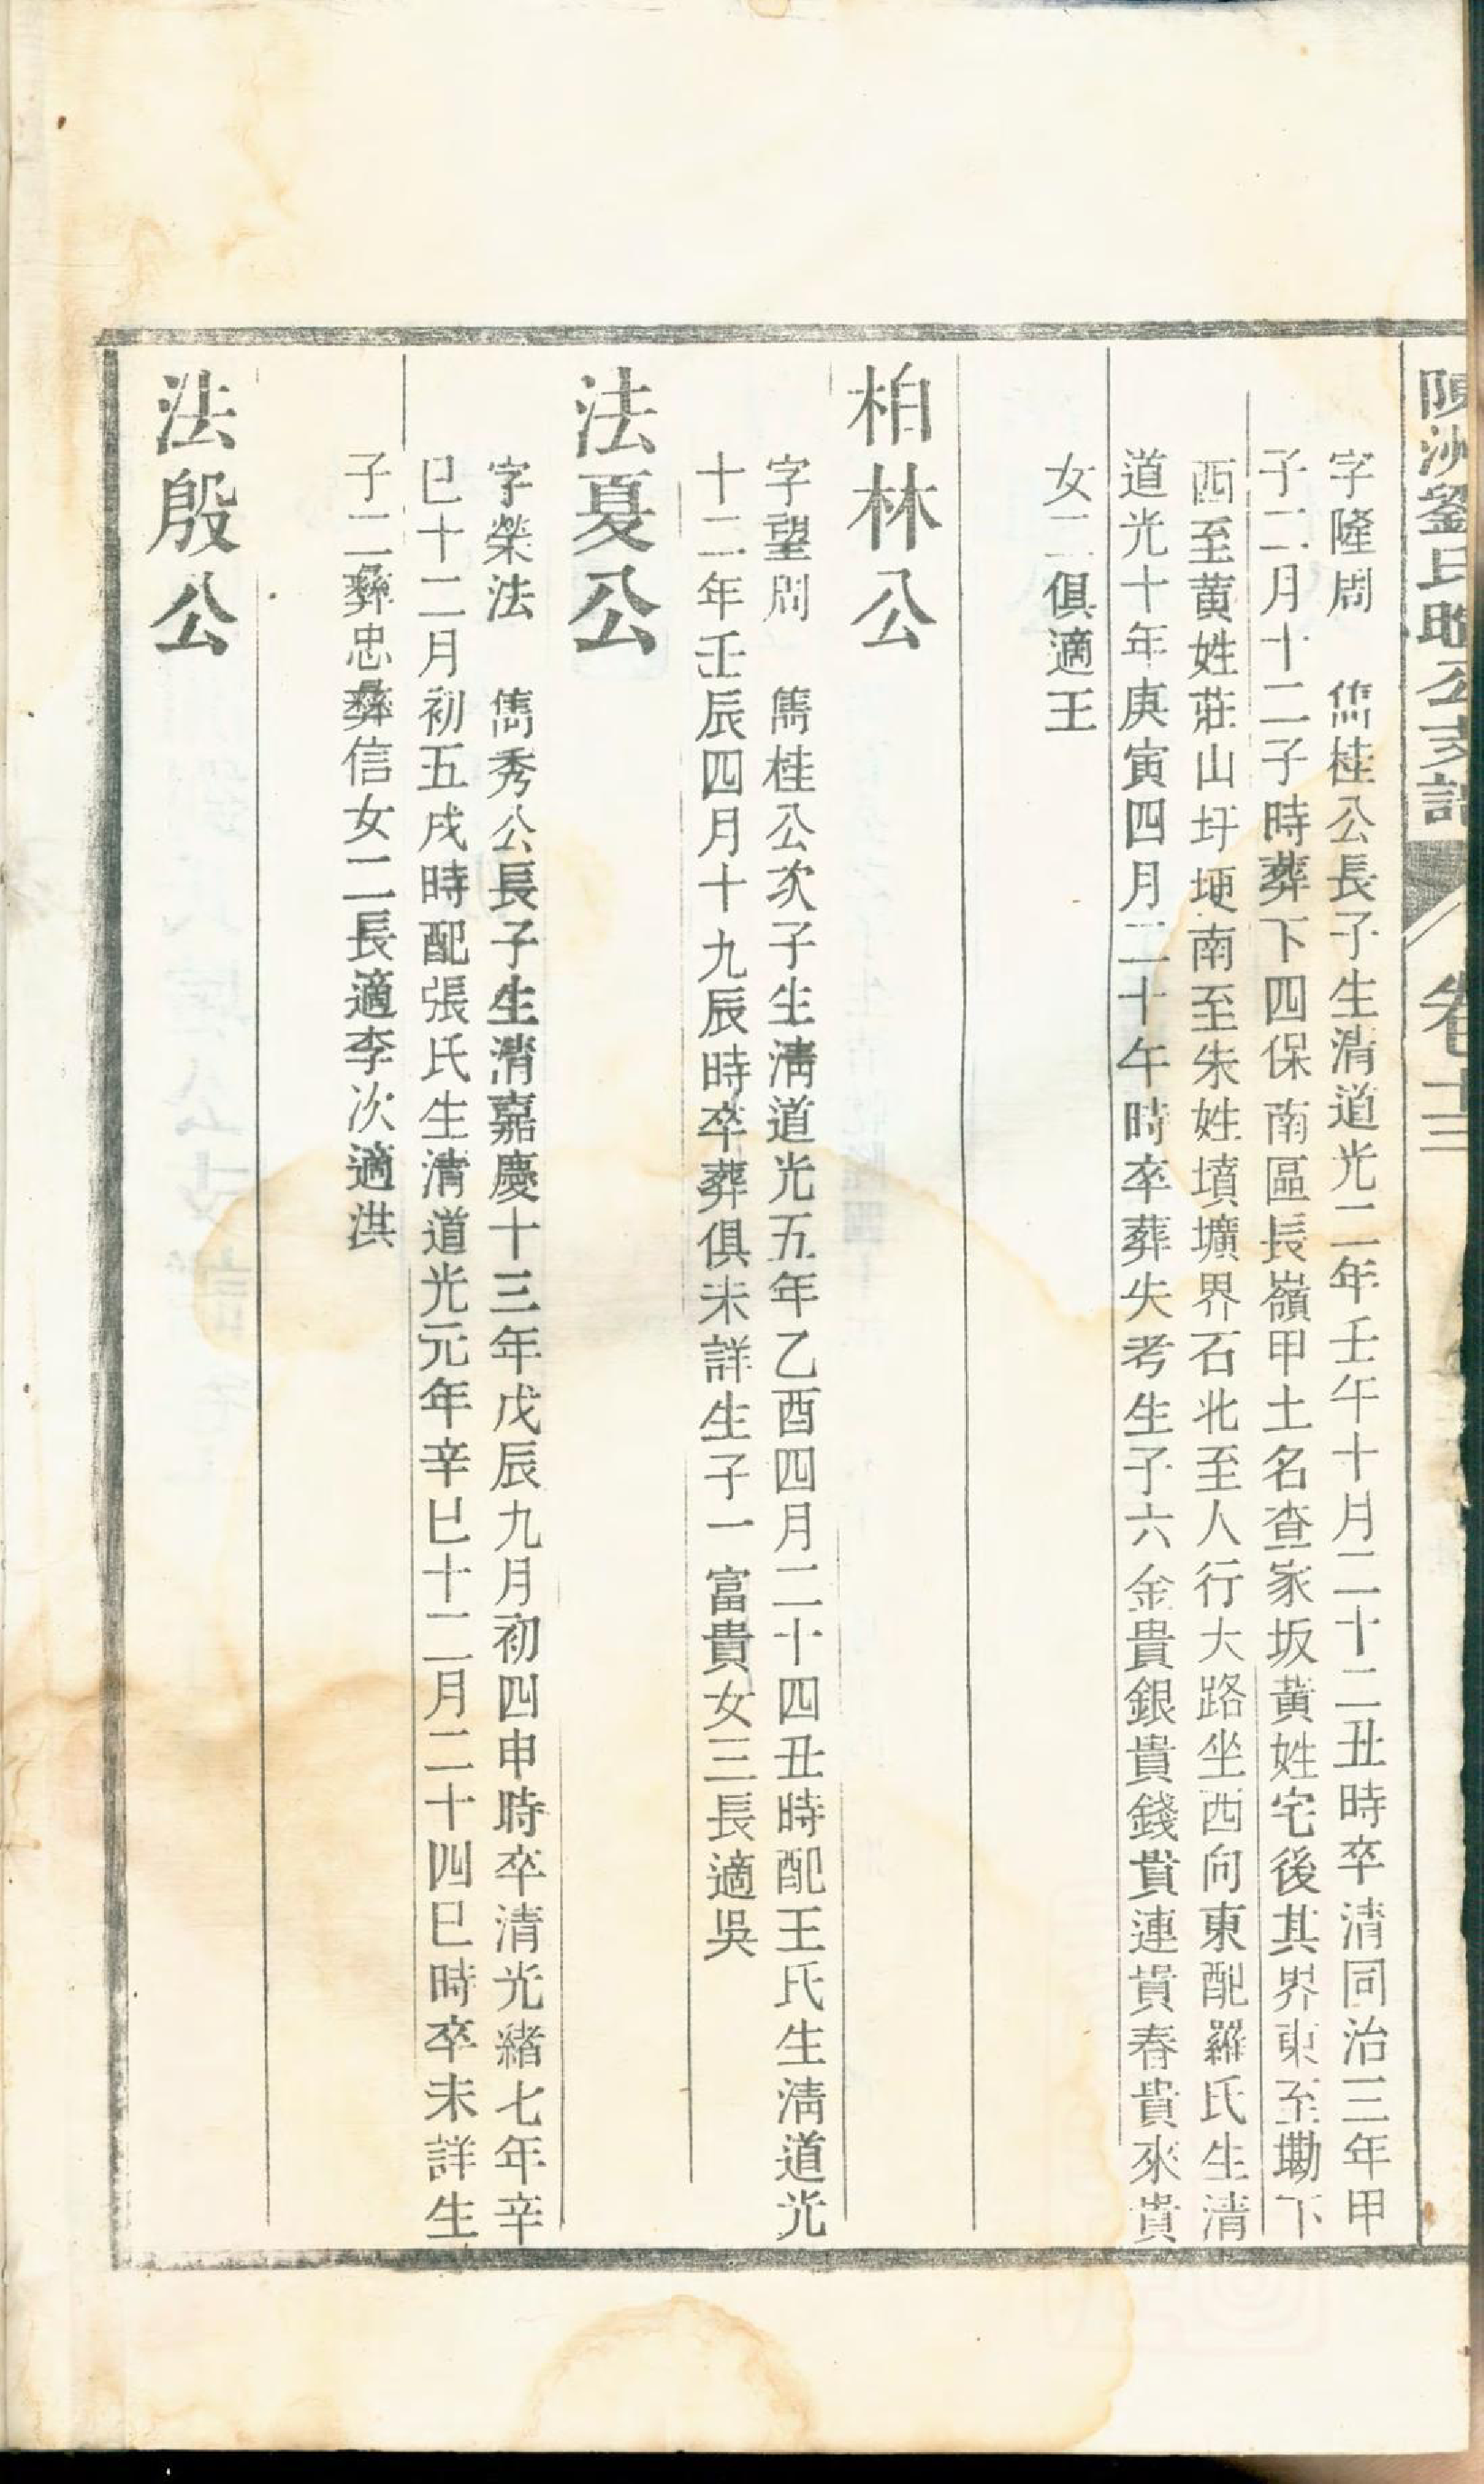 劉氏 公支譜 卷十三
字隆周 儁桂公長子生清道光二年壬午十月二十二丑時卒清同治三年甲
子二月十二子時葬下四保南區長嶺甲土名查家坂黃姓宅後其界東至墈下
西至黃姓莊山圩埂南至朱姓墳壙界石北至人行大路坐西向東配羅氏生清
道光十年庚寅四月二十午時卒葬失考生子六金貴銀貴錢貴連貴春貴來貴
女二俱適王
柏林公
字望周 儁桂公次子生清道光五年乙酉四月二十四丑時配王氏生清道光
十二年壬辰四月十九辰時卒葬俱未詳生子一富貴女三長適吳
法夏公
字榮法 儁秀公長子生清嘉慶十三年戊辰九月初四申時卒清光緒七年辛
巳十二月初五戌時配張氏生清道光元年辛巳十二月二十四巳時卒未詳生
子二彝忠彝信女二長適李次適洪
法殷公